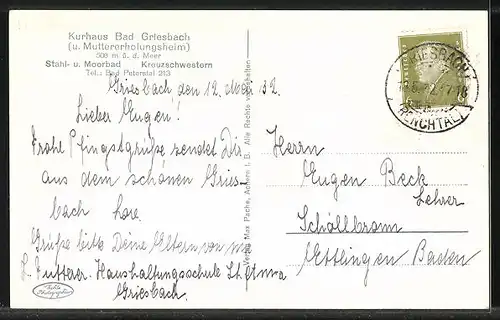 Kurhaus Bad Griesbach
(u. Müttererholungsheim)
508 m ü. d. Meer
Stahl- u. Moorbad Kreuzschwestern
Tel.: Bad Peterstal 213
Griesbach den 12. 32.
Lieber Eugen!
Frohe Pfingstgrüße sendet Dir
aus dem schönen Gries-
bach
Grüße bitte Deine Eltern von mir
Haushaltungsschule
Griesbach.
Verlag Max Pache, Achern i. B. Alle Rechte vorbehalten
GRIESBACH
RENCHTAL
Herrn
Eugen Beck
Lehrer
Schöllbronn
Ettlingen Baden